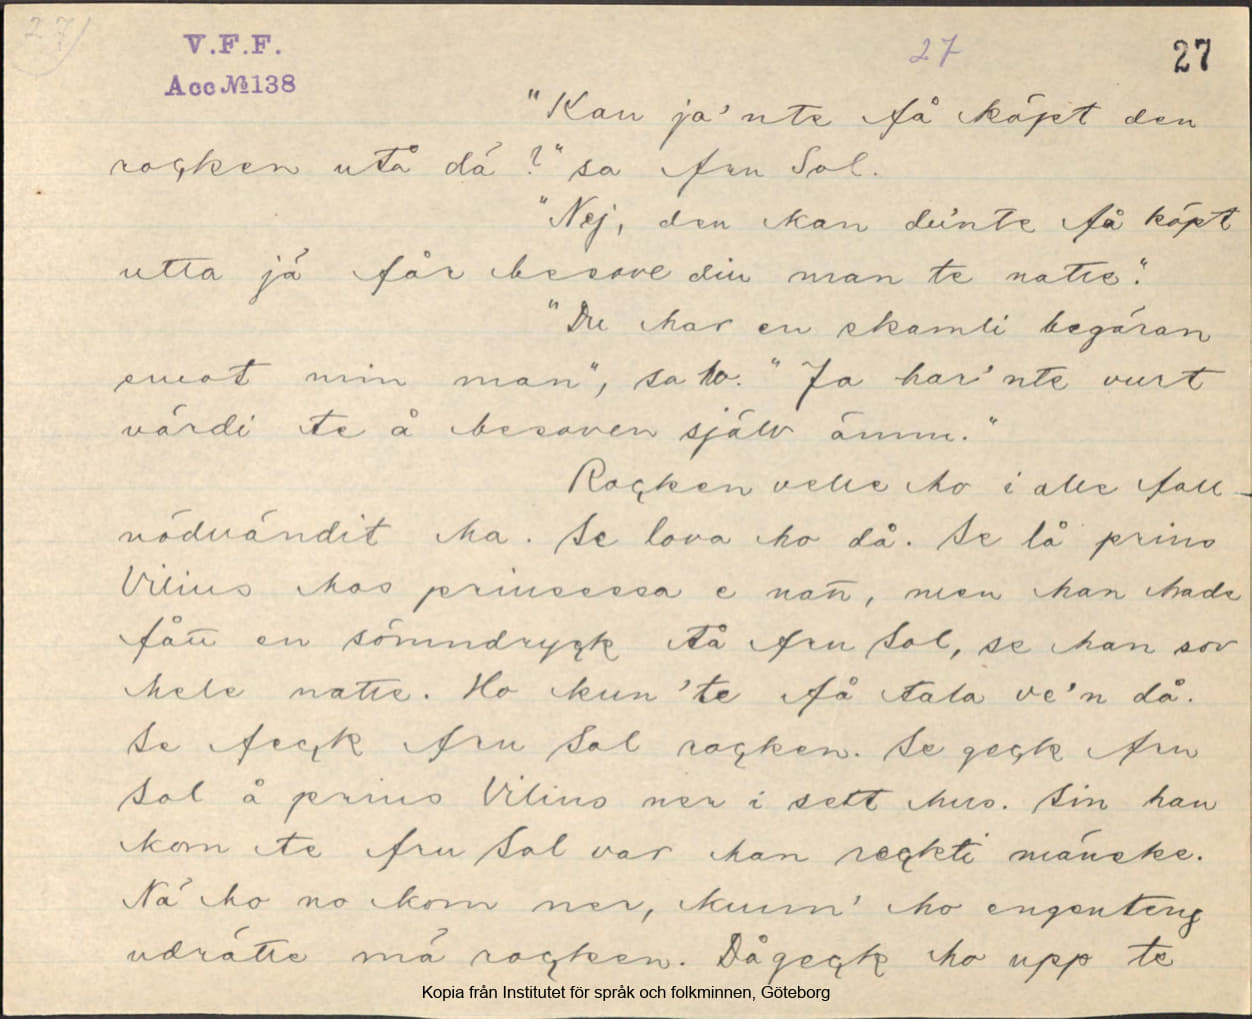 27)
V.F.F.
Acc № 138
27
27
"Kan ja'nte få köpt den
roçken utå dä?" sa fru Sol.
"Nej, den kan du'nte få köpt
utta jä får besove din man te natte."
"Du har en skamli begäran
emot min man", sa ho. "Ja har'nte vurt
värdi te å besoven själv ännu."
Roçken velle ho i alle fall
nödvändit ha. Se lova ho då. Se lå prins
Vilius hos prinsessa e natt, men han hade
fått en sömndryçk tå fru Sol, se han sov
hele natte. Ho kun'te få tala ve'n då.
Se feçk fru Sol roçken. Se geçk fru
Sol å prins Vilius ner i sett hus. Sin han
kom te fru Sol var han reçkti mänske.
Nä ho no kom ner, kunn' ho engenteng
udrätte mä roçken. Då geçk ho upp te
Kopia från Institutet för språk och folkminnen, Göteborg